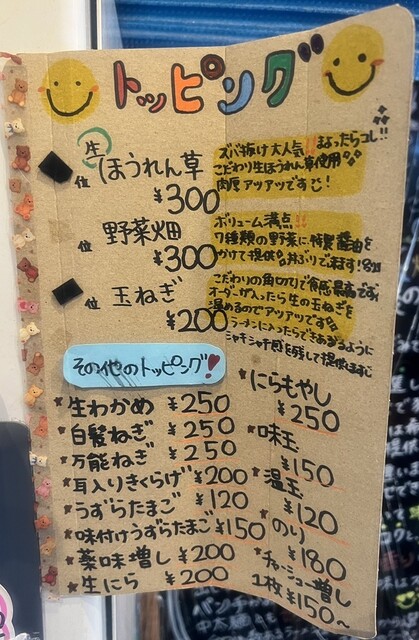 トッピング
生
ほうれん草
位
¥300
ズバ抜け大人気!!まよったらコレ!!
こだわり生ほうれん草使用
肉厚アツアツです!
野菜畑
位
¥300
ボリューム満点!!
7種類の野菜に特製醤油を
かけて提供
玉ねぎ
位
¥200
こだわりの角切りで食感最高です
オーダーが入ったら生の玉ねぎを
温めるのでアツアツです
ラーメンに入ったらできあがるように
シャキシャキ感を残して提供
その他のトッピング!
生わかめ ¥250
白髪ねぎ ¥250
万能ねぎ ¥250
耳入りきくらげ ¥200
うずらたまご ¥120
味付けうずらたまご ¥150
薬味増し ¥200
生にら ¥200
にらもやし
¥250
味玉
¥150
温玉
¥120
のり
¥180
チャーシュー増し
1枚 ¥150~